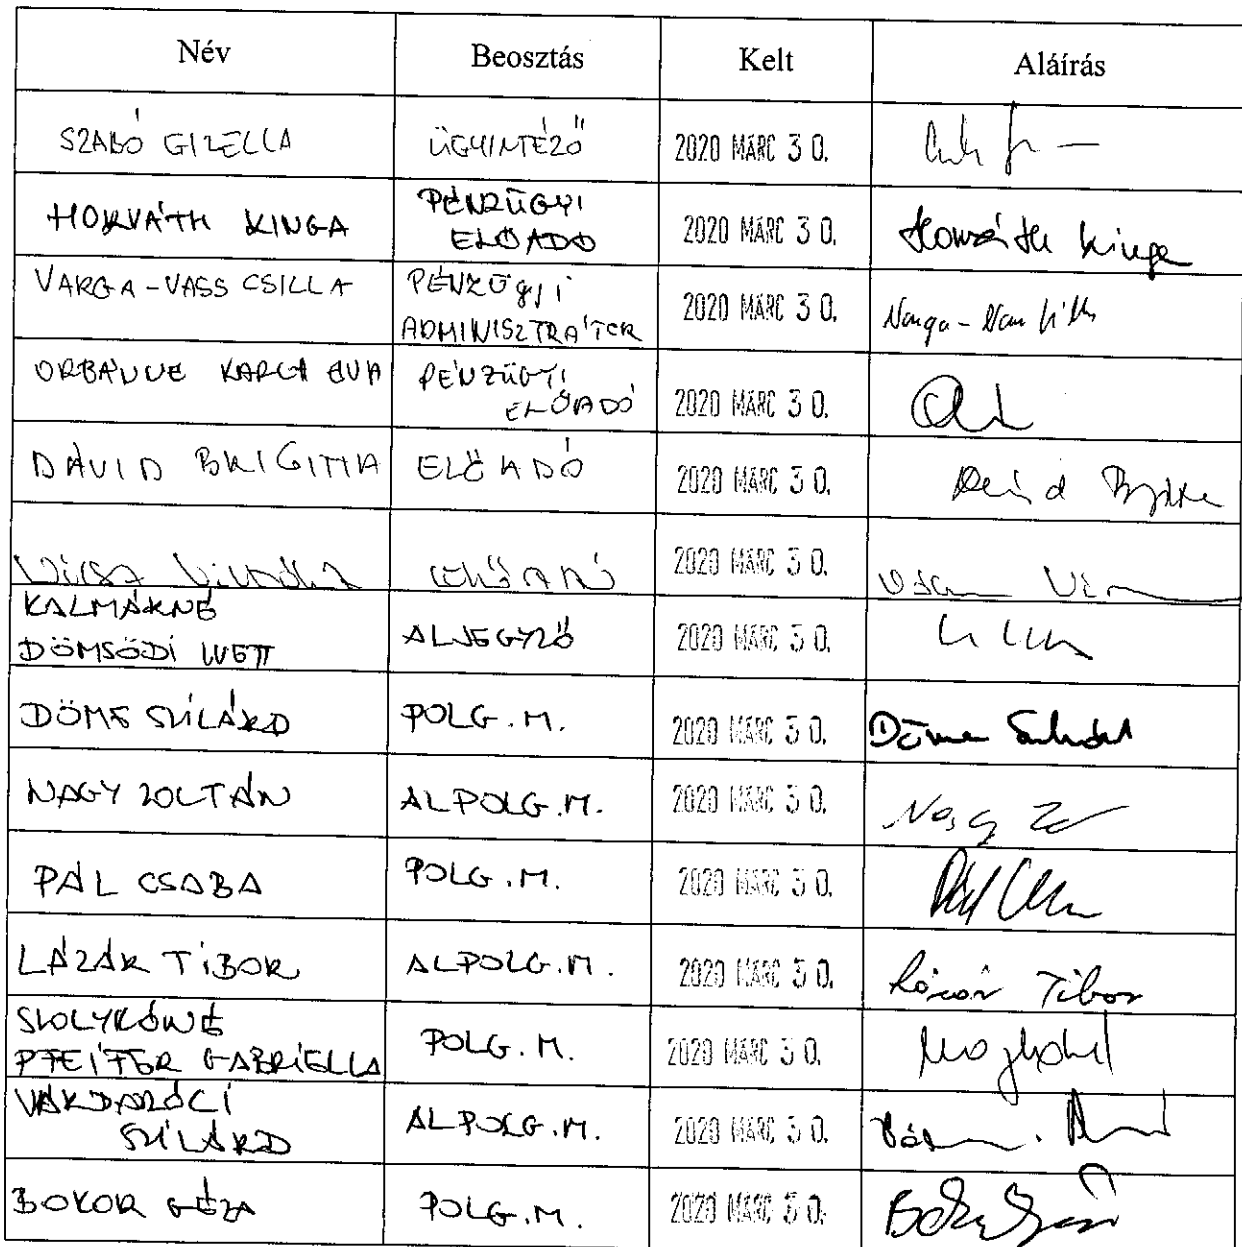 Név Beosztás Kelt Aláírás
SZABÓ GIZELLA ÜGYINTÉZŐ 2020 MÁRC 30.
HORVÁTH KINGA PÉNZÜGYI ELŐADÓ 2020 MÁRC 30. Horváth Kinga
VARGA-VASS CSILLA PÉNZÜGYI ADMINISZTRÁTOR 2020 MÁRC 30.
ORBÁNNÉ ÉVA PÉNZÜGYI ELŐADÓ 2020 MÁRC 30.
DÁVID BRIGITTA ELŐADÓ 2020 MÁRC 30. Dávid
2020 MÁRC 30.
KALMÁRNÉ
DÖMSÖDI IVETT ALJEGYZŐ 2020 MÁRC 30.
DÖME SZILÁRD POLG.M. 2020 MÁRC 30. Döme Szilárd
NAGY ZOLTÁN ALPOLG.M. 2020 MÁRC 30. Nagy
PÁL CSABA POLG.M. 2020 MÁRC 30.
LÁZÁR TIBOR ALPOLG.M. 2020 MÁRC 30. Lázár Tibor
PFEIFFER GABRIELLA POLG.M. 2020 MÁRC 30.
SZILÁRD ALPOLG.M. 2020 MÁRC 30.
BOKOR GÉZA POLG.M. 2020 MÁRC 30.